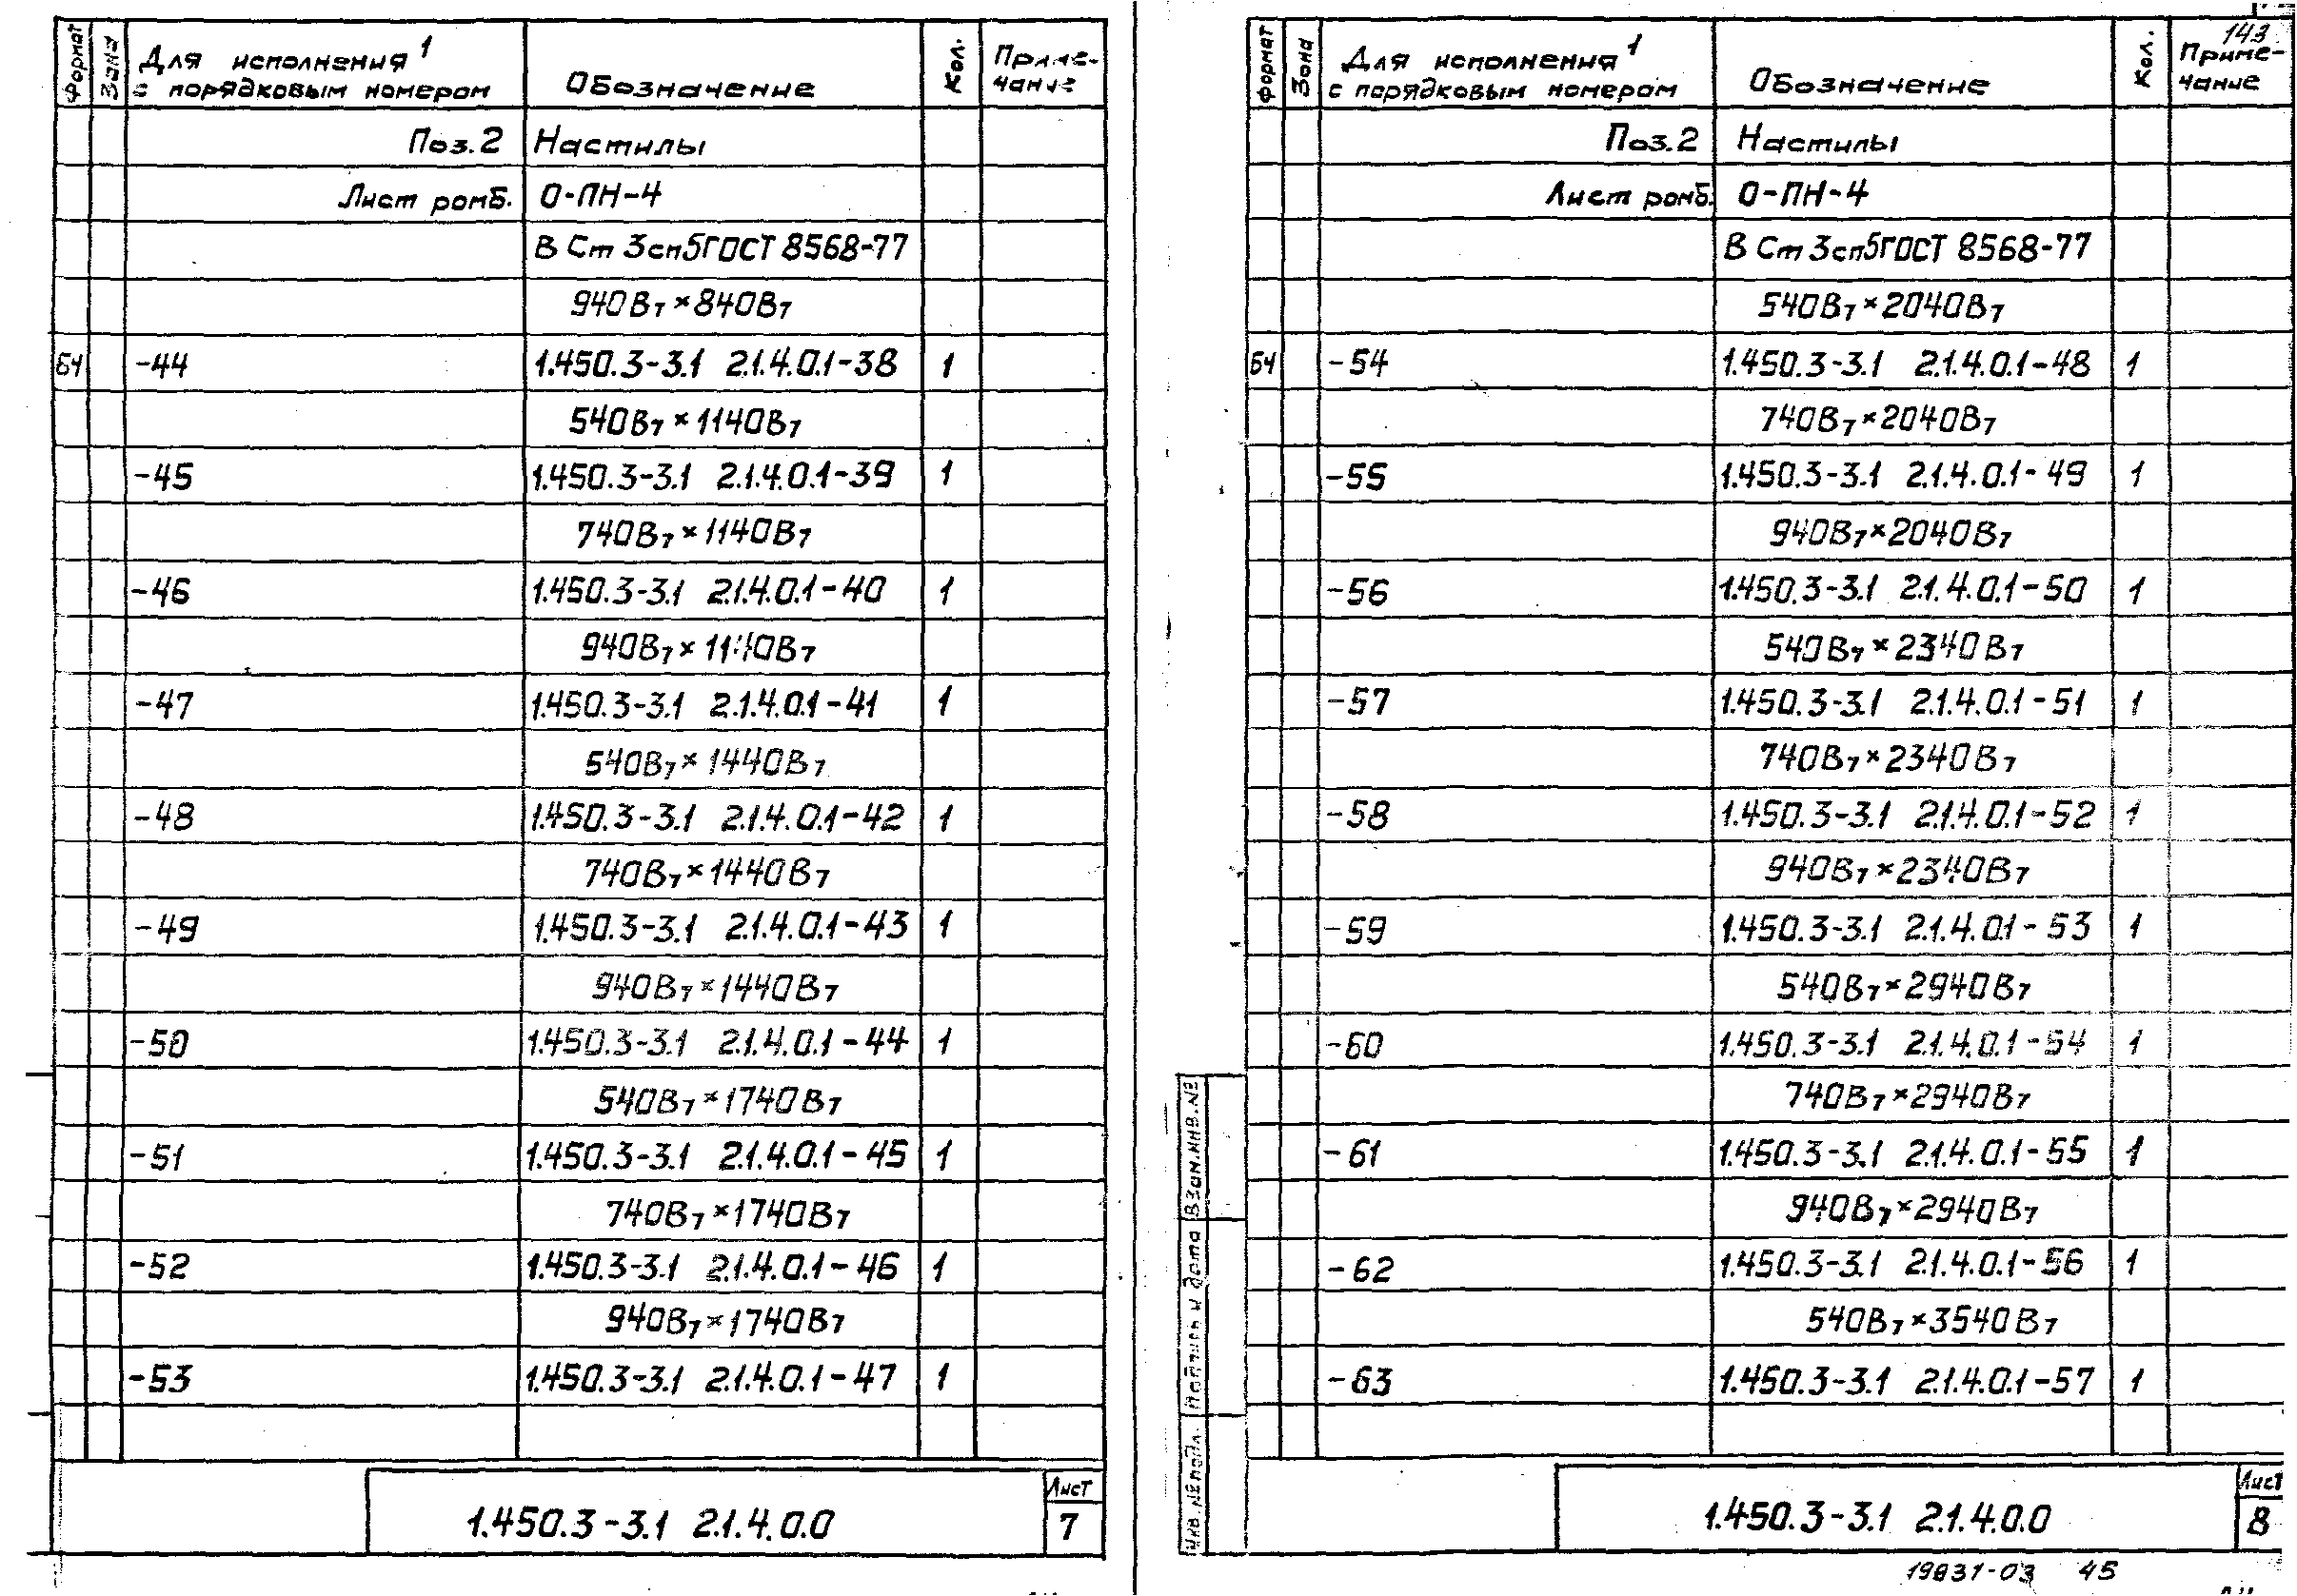 Формат Зона Для исполнения 1 с порядковым номером Обозначение Кол. Примечание
Поз.2 Настилы
Лист ромб. О-ПН-4
В Ст 3сп5 ГОСТ 8568-77
940В7×840В7
БЧ -44 1.450.3-3.1 2.1.4.0.1-38 1
540В7×1140В7
-45 1.450.3-3.1 2.1.4.0.1-39 1
740В7×1140В7
-46 1.450.3-3.1 2.1.4.0.1-40 1
940В7×1140В7
-47 1.450.3-3.1 2.1.4.0.1-41 1
540В7×1440В7
-48 1.450.3-3.1 2.1.4.0.1-42 1
740В7×1440В7
-49 1.450.3-3.1 2.1.4.0.1-43 1
940В7×1440В7
-50 1.450.3-3.1 2.1.4.0.1-44 1
540В7×1740В7
-51 1.450.3-3.1 2.1.4.0.1-45 1
740В7×1740В7
-52 1.450.3-3.1 2.1.4.0.1-46 1
940В7×1740В7
-53 1.450.3-3.1 2.1.4.0.1-47 1
1.450.3-3.1 2.1.4.0.0
Лист
7
143
Формат Зона Для исполнения 1 с порядковым номером Обозначение Кол. Примечание
Поз.2 Настилы
Лист ромб. О-ПН-4
В Ст 3сп5 ГОСТ 8568-77
540В7×2040В7
БЧ -54 1.450.3-3.1 2.1.4.0.1-48 1
740В7×2040В7
-55 1.450.3-3.1 2.1.4.0.1-49 1
940В7×2040В7
-56 1.450.3-3.1 2.1.4.0.1-50 1
540В7×2340В7
-57 1.450.3-3.1 2.1.4.0.1-51 1
740В7×2340В7
-58 1.450.3-3.1 2.1.4.0.1-52 1
940В7×2340В7
-59 1.450.3-3.1 2.1.4.0.1-53 1
540В7×2940В7
-60 1.450.3-3.1 2.1.4.0.1-54 1
740В7×2940В7
-61 1.450.3-3.1 2.1.4.0.1-55 1
940В7×2940В7
-62 1.450.3-3.1 2.1.4.0.1-56 1
540В7×3540В7
-63 1.450.3-3.1 2.1.4.0.1-57 1
Взам.инв.№
Подпись и дата
Инв.№подл.
1.450.3-3.1 2.1.4.0.0
Лист
8
19831-03 45